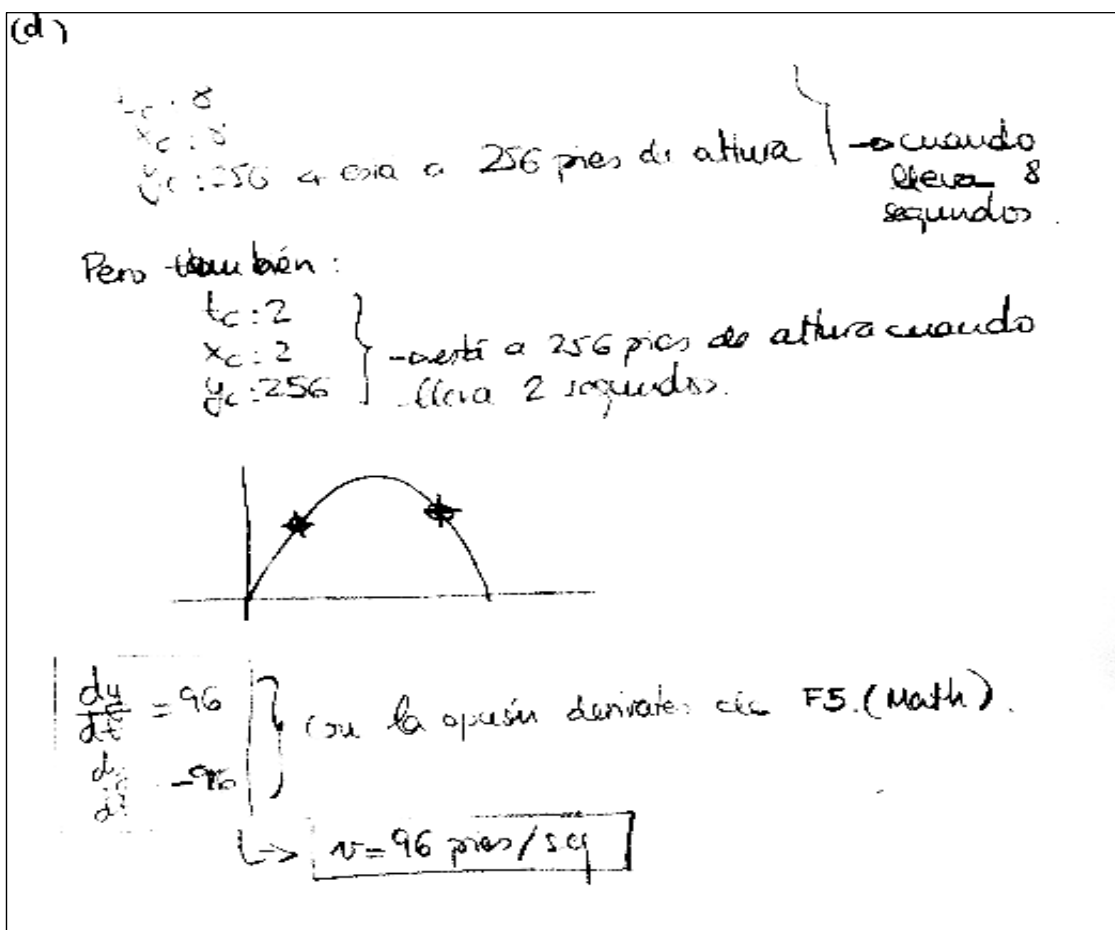 (d)
tc : 8
xc : 8
yc : 256 → está a 256 pies de altura → cuando
lleva 8
segundos.
Pero también :
tc : 2
xc : 2
yc : 256
→ está a 256 pies de altura cuando
lleva 2 segundos.
dy/dt = 96
dy/dt = -96
con la opción derivates de F5 (Math).
↳ v = 96 pies/seg